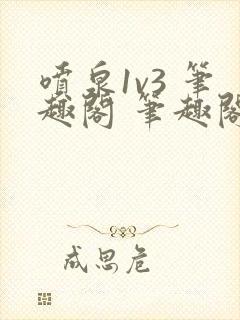 喷泉1v3 筆
趣阁 筆趣阁
成思危